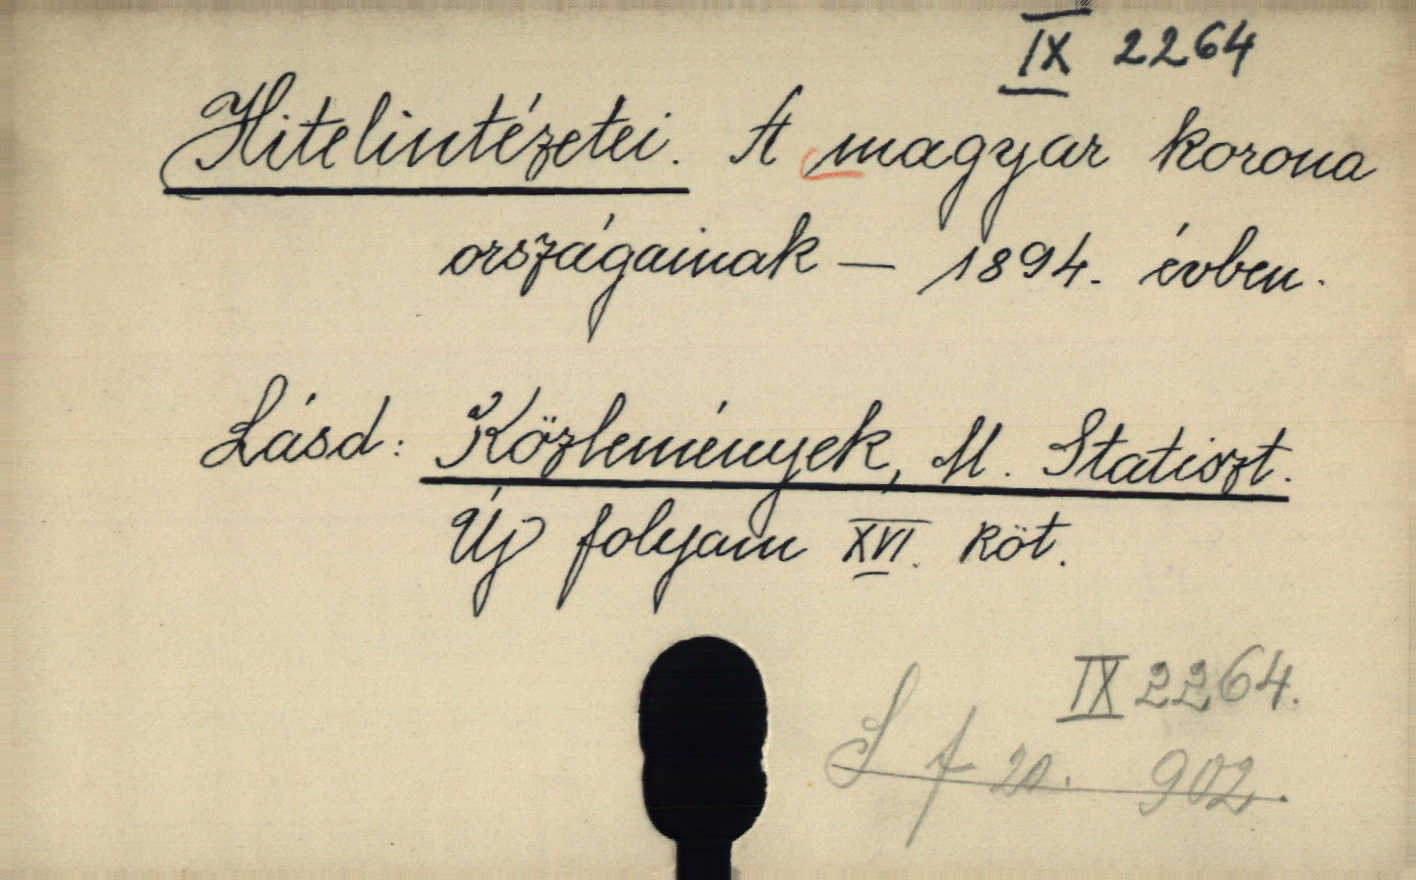 IX 2264
Hitelintézetei. A magyar korona
országainak — 1894. évben.
Lásd: Közlemények, M. Statiszt.
Új folyam XVI. köt.
IX 2264.
S f 20. 902.